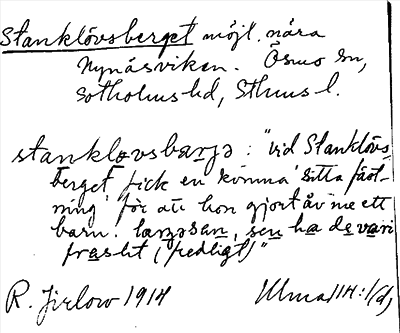 Stanklövsberget möjl. nära
Nynäsviken. Ösmo sn,
Sotholms hd, Sthms l.
stanklovsbarjə: "vid Stanklövs-
berget fick en kvinna 'sitta fäst-
ning' för att hon gjort åv me ett
barn. lanjəsən, sen ha de vari
fraslit ('fredligt')"
R. Jirlow 1914